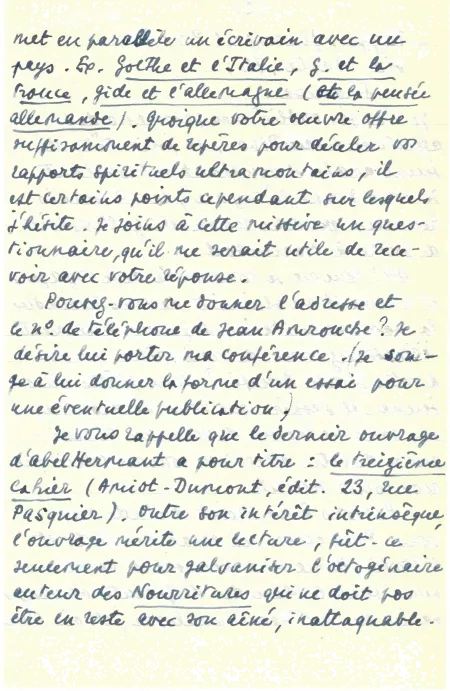 met en parallèle un écrivain avec un
pays. Ex. Goethe et l'Italie, G. et la
France, Gide et l'allemagne (et la pensée
allemande). Quoique votre oeuvre offre
suffisamment de repères pour déceler vos
rapports spirituels ultramontains, il
est certains points cependant sur lesquels
j'hésite. Je joins à cette missive un ques-
tionnaire, qu'il me serait utile de rece-
voir avec votre réponse.
Pouvez-vous me donner l'adresse et
le no. de téléphone de Jean Amrouche? Je
désire lui porter ma conférence. (Je son-
ge à lui donner la forme d'un essai pour
une éventuelle publication.)
Je vous rappelle que le dernier ouvrage
d'abel Hermant a pour titre : le treizième
Cahier (Amiot-Dumont, édit. 23, rue
Pasquier). Outre son intérêt intrinsèque,
l'ouvrage mérite une lecture, fût-ce
seulement pour galvaniser l'octogénaire
auteur des Nourritures qui ne doit pas
être en reste avec son aîné, inattaquable.